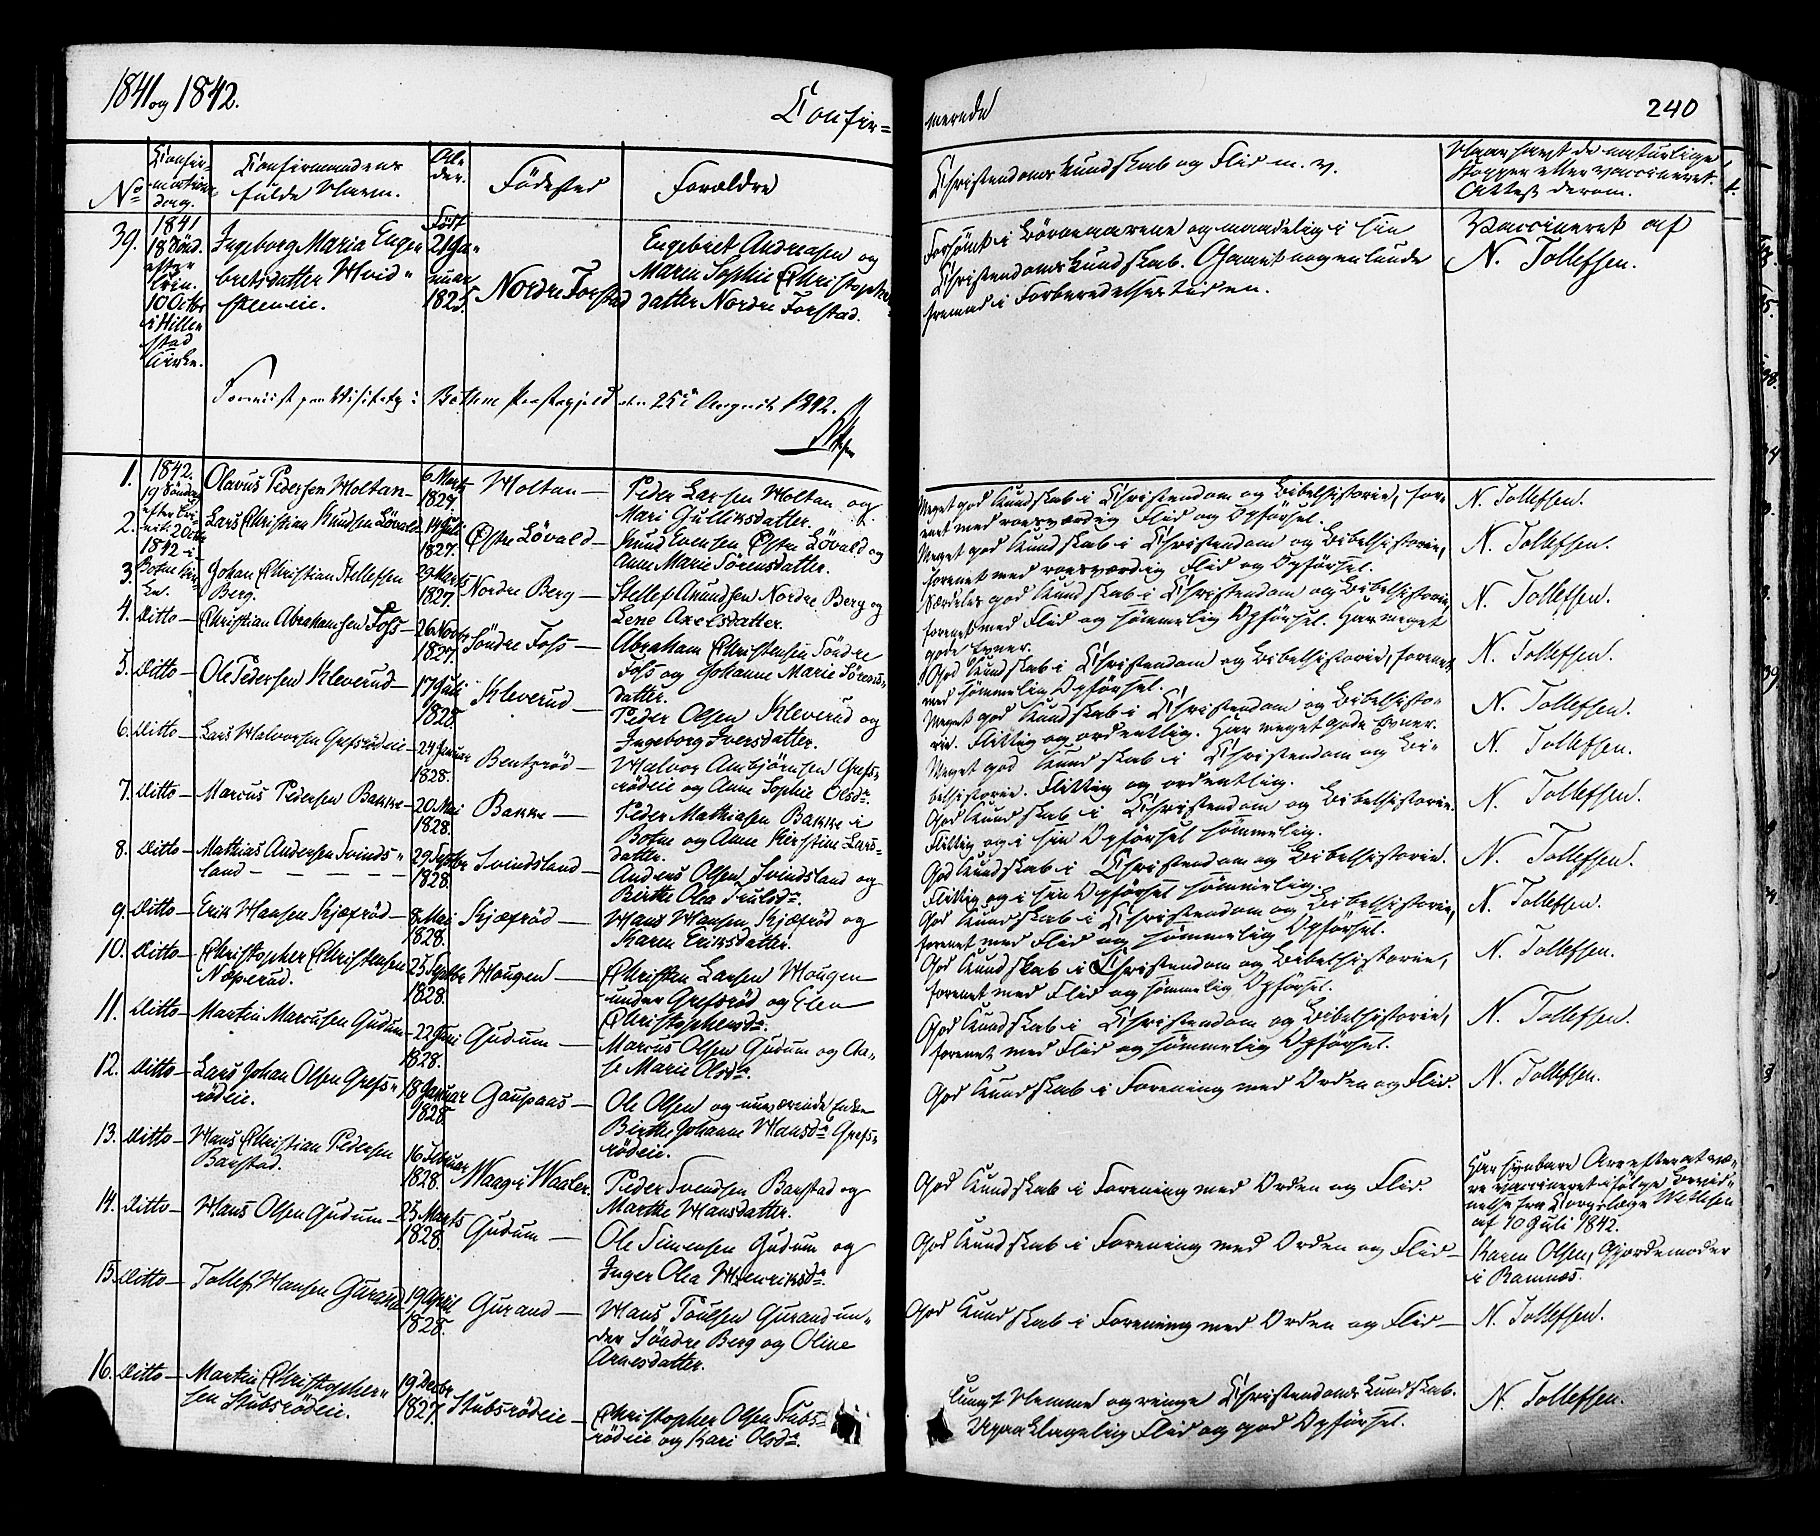 1841 og 1842.
Confir=
merede
240
No
Confir-
mations
dag.
Confirmandens
fulde Navn.
Al-
der.
Födested
Forældre
Christendoms Kundskab og Flid m. v.
Naar havt de naturlige
Kopper eller vaccineret.
Attest derom.
39.
1841
18 Sönd.
efter
Trin.
10 Octbr
i Hille=
stad
Kirke.
Ingeborg Maria Enge=
bretsdatter Hvid=
steneie.
Föd
21 Ja=
nuar
1825.
Nordre Forstad
Engebret Andreasen og
Maren Sophie Christopher=
datter Nordre Forstad.
Forsömt i Börneaarene og maadelig i sin
Christendoms Kundskab. Gaaet nogenlunde
fremad i Forberedelsestiden.
Vaccineret af
N. Tollefsen.
Foreviist paa Visitats i Botne Præstegjeld den 25de August 1842.
1.
1842.
19 Söndag
efter Tri-
nit: 2 Octbr
1842 i
Botne Kir=
ke.
Olavus Pedersen Holtan
6 Marts
1827.
Holtan
Peder Larsen Holtan og
Mari Gulliksdatter.
Meget god Kundskab i Christendom og Bibelhistorie, fore=
net med roesværdig Flid og Opförsel.
N. Tollefsen.
2.
Lars Christian Knudsen Lövald
14 Juli
1827.
Östre Lövald
Knud Evensen Östre Lövald og
Anne Marie Sörensdatter.
Meget god Kundskab i Christendom og Bibelhistorie,
forenet med roesværdig Flid og Opförsel.
N. Tollefsen.
3.
Johan Christian Stellefsen
Berg.
29 Marts
1827.
Nordre Berg
Stellef Anundsen Nordre Berg og
Lene Axelsdatter.
Særdeles god Kundskab i Christendom og Bibelhistorie,
forenet med Flid og sömmelig Opförsel. Har meget
gode Evner.
N. Tollefsen.
4.
Ditto
Christian Abrahamsen Foss
26 Novbr
1827.
Söndre Foss
Abraham Christensen Söndre
Foss og Johanne Marie Sörens=
datter.
God Kundskab i Christendom og Bibelhistorie, forenet
med sömmelig Opförsel.
N. Tollefsen.
5.
Ditto
Ole Pedersen Kleverud
17 Juli
1828.
Kleverud
Peder Olsen Kleverud og
Ingeborg Iversdatter.
Meget god Kundskab i Christendom og Bibelhisto=
rie. Flittig og ordentlig. Har meget gode Evner.
N. Tollefsen.
6.
Ditto
Lars Halvorsen Grefsrödeie
24 Januar
1828.
Bentsröd
Halvor Ambjörnsen Grefs=
rödeie og Anne Sophie Olsdr.
Meget god Kundskab i Christendom og Bi=
belhistorie. Flittig og ordentlig.
N. Tollefsen.
7.
Ditto
Marcus Pedersen Bakke
20 Mai
1828.
Bakke
Peder Mathiasen Bakke i
Botne og Anne Kirstine Lars=
datter.
God Kundskab i Christendom og Bibelhistorie.
Flittig og i sin Opförsel sömmelig.
N. Tollefsen.
8.
Ditto
Mathias Andersen Svinds=
land
29 Septbr
1828.
Svindsland
Anders Olsen Svindsland og
Birthe Olea Trulsdr.
God Kundskab i Christendom og Bibelhistorie.
Flittig og i sin Opförsel sömmelig.
N. Tollefsen.
9.
Ditto
Erik Hansen Kjæfröd
8 Mai
1828.
Kjæfröd
Hans Hansen Kjæfröd og
Karen Eriksdatter.
God Kundskab i Christendom og Bibelhistorie,
forenet med Flid og sömmelig Opförsel.
N. Tollefsen.
10.
Ditto
Christopher Christensen
Næperud.
25 Septbr
1828.
Hougen
Christen Larsen Hougen
under Grefsröd og Elen
Christophersdr.
God Kundskab i Christendom og Bibelhistorie,
forenet med Flid og sömmelig Opförsel.
N. Tollefsen.
11.
Ditto
Martin Marcusen Gudum
22 Juni
1828.
Gudum
Marcus Olsen Gudum og Aa=
se Marie Olsdr.
God Kundskab i Christendom og Bibelhistorie,
forenet med Flid og sömmelig Opförsel.
N. Tollefsen.
12.
Ditto
Lars Johan Olsen Grefs=
rödeie.
18 Januar
1828.
Gaupaas
Ole Olsen og nuværende Enke
Birthe Johanne Hansdr Grefs=
rödeie.
God Kundskab i Forening med Orden og Flid.
N. Tollefsen.
13.
Ditto
Hans Christian Pedersen
Barstad.
16 Februar
1828.
Haag i Waaler.
Peder Svendsen Barstad og
Marthe Hansdatter.
God Kundskab i Forening med Orden og Flid.
Har synbare Ar efter at væ=
re vaccineret ifölge Bevid=
nelse fra Corpslæge Wettesen
af 10 Juli 1842.
14.
Ditto
Hans Olsen Gudum
25 Marts
1828.
Gudum
Ole Simensen Gudum og
Inger Olea Henriksdr.
God Kundskab i Forening med Orden og Flid
Karen Olsen, Gjordemoder
i Ramnæs.
15.
Ditto
Tollef Hansen Gurand
19 April
1828.
Gurand
Hans Poulsen Gurand un=
der Söndre Berg og Oline
Arnesdatter.
God Kundskab i Forening med Orden og Flid
N. Tollefsen.
16.
Ditto
Martin Christopher=
sen Stubsrödeie.
19 Decbr
1827.
Stubsrödeie
Christopher Olsen Stubs=
rödeie og Kari Olsdr.
Tungt Nemme og ringe Christendoms Kundskab.
Upaaklagelig Flid og god Opförsel.
N. Tollefsen.